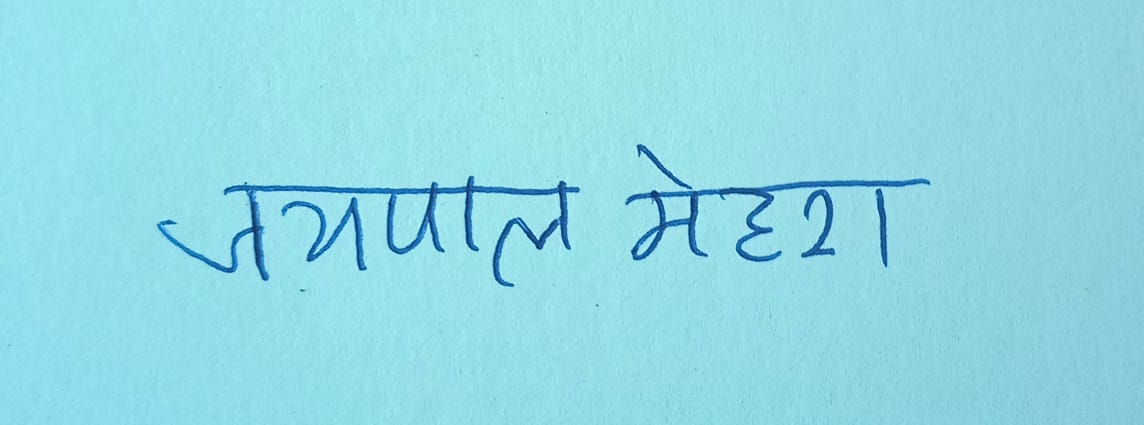 जयपाल मेहरा